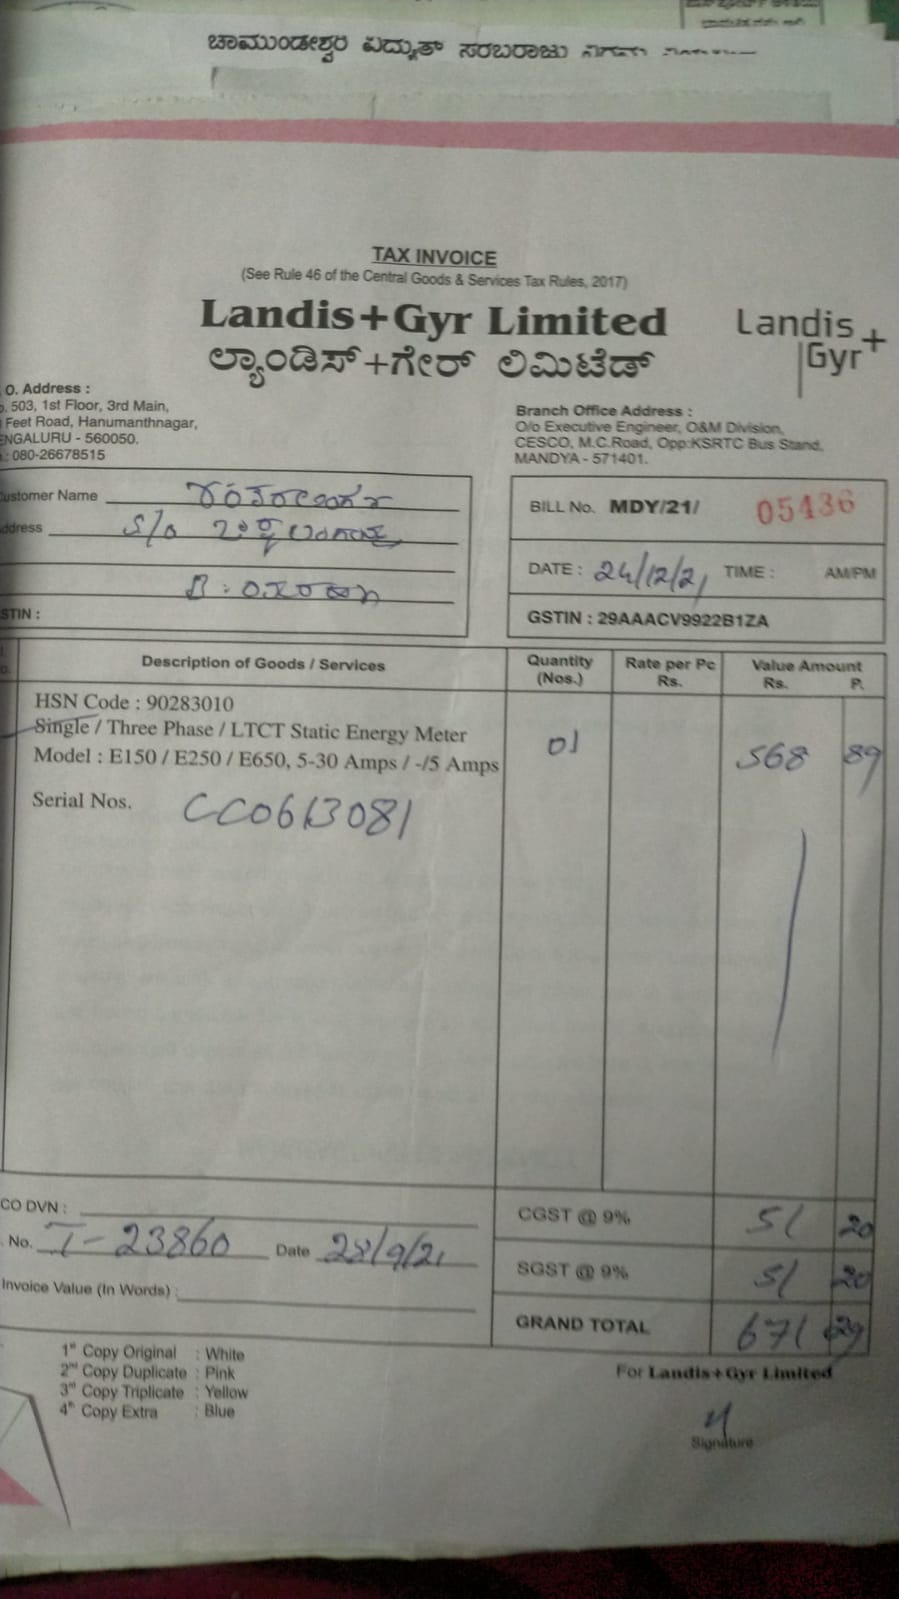 ಚಾಮುಂಡೇಶ್ವರಿ ವಿದ್ಯುತ್ ಸರಬರಾಜು ನಿಗಮ
TAX INVOICE
(See Rule 46 of the Central Goods & Services Tax Rules, 2017)
Landis+Gyr Limited
ಲ್ಯಾಂಡಿಸ್+ಗೇರ್ ಲಿಮಿಟೆಡ್
Landis+
Gyr
O. Address :
503, 1st Floor, 3rd Main,
Feet Road, Hanumanthnagar,
ENGALURU - 560050.
: 080-26678515
Branch Office Address :
O/o Executive Engineer, O&M Division,
CESCO, M.C.Road, Opp:KSRTC Bus Stand,
MANDYA - 571401.
ustomer Name
ddress S/o
STIN :
BILL No. MDY/21/ 05436
DATE : 24/12/21 TIME : AM/PM
GSTIN : 29AAACV9922B1ZA
Description of Goods / Services
Quantity (Nos.)
Rate per Pc Rs.
Value Amount
Rs. P.
HSN Code : 90283010
Single / Three Phase / LTCT Static Energy Meter
Model : E150 / E250 / E650, 5-30 Amps / -/5 Amps
01 568 89
Serial Nos. CC0613081
CO DVN :
. No. T-23860 Date 28/9/21
Invoice Value (In Words) :
CGST @ 9% 51 20
SGST @ 9% 51 20
GRAND TOTAL 671 29
1st Copy Original : White
2nd Copy Duplicate : Pink
3rd Copy Triplicate : Yellow
4th Copy Extra : Blue
For Landis+Gyr Limited
Signature